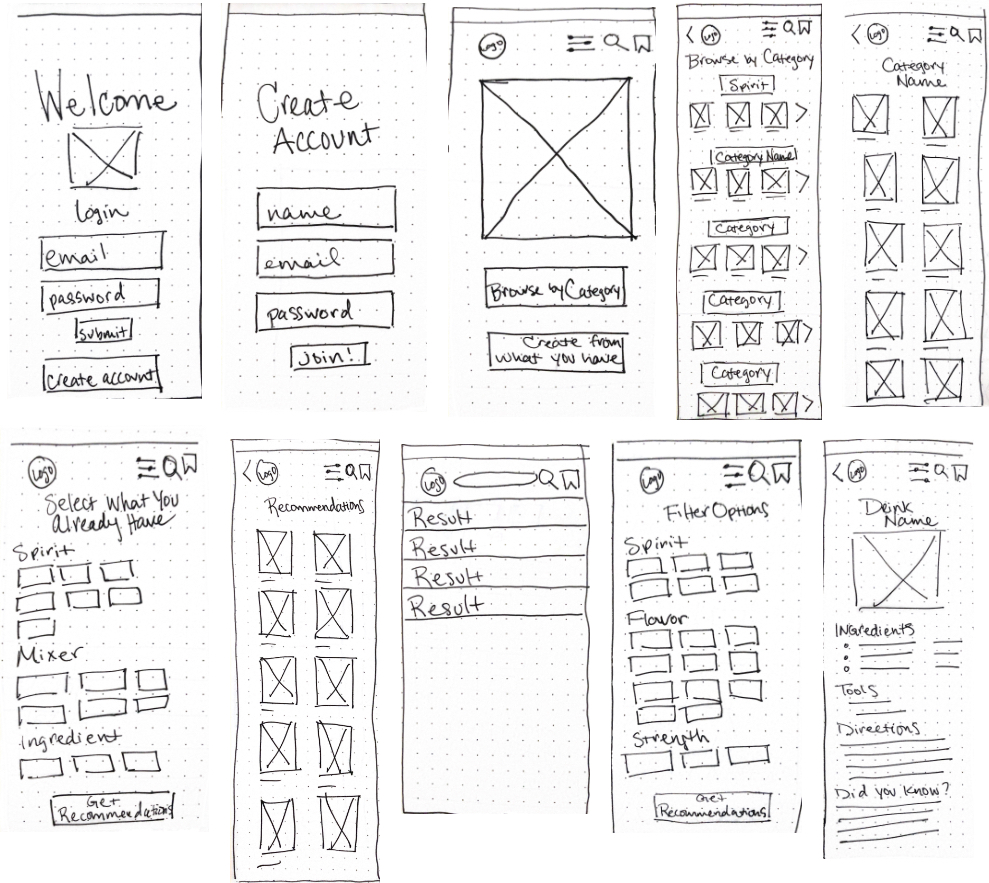 Welcome
Login
email
password
Submit
Create account
Create
Account
name
email
password
Join!
Logo
Browse by Category
Create from
what you have
Logo
Browse by Category
Spirit
Category Name
Category
Category
Category
Logo
Category
Name
Logo
Select What You
Already Have
Spirit
Mixer
Ingredient
Get
Recommendations
Logo
Recommendations
Logo
Result
Result
Result
Result
Logo
Filter Options
Spirit
Flavor
Strength
Get
Recommendations
Logo
Drink
Name
Ingredients
Tools
Directions
Did you know?